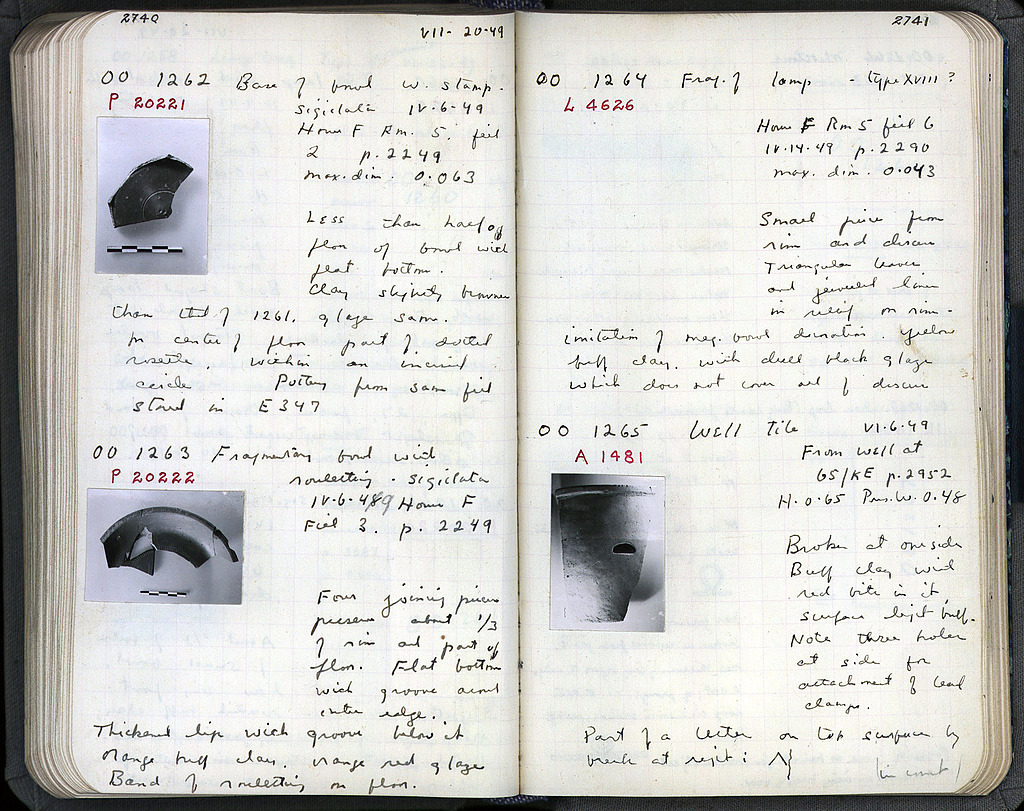 2740
VII-20-49
OO 1262 Base of bowl w. stamp.
P 20221
Sigillata IV-6-49
House F Rm. 5. fill
2 p. 2249
max. dim. 0.063
Less than half of
floor of bowl with
flat bottom.
Clay slightly browner
than that of 1261. glaze same.
In center of floor part of dotted
rosette, within an incised
circle Pottery from same fill
stored in E 347
OO 1263 Fragmentary bowl with
P 20222
rouletting. Sigillata
IV-6-49 House F
Fill 3. p. 2249
Four joining pieces
preserve about 1/3
of rim and part of
floor. Flat bottom
with groove around
outer edge.
Thickened lip with groove below it
Orange buff clay. orange red glaze
Band of rouletting on floor.
2741
OO 1264 Frag. of lamp - Type XVIII?
L 4626
House F Rm 5 fill 6
IV-14-49 p. 2290
max. dim. 0.043
Small piece from
rim and discus
Triangular leaves
and jewelled lines
in relief on rim -
imitation of meg. bowl decoration. Yellow
buff clay, with dull black glaze
which does not cover all of discus
OO 1265 Well Tile VI-6-49
A 1481
From well at
65/KE p. 2952
H. 0.65 Pres. W. 0.48
Broken at one side
Buff clay with
red bits in it,
surface light buff.
Note three holes
at side for
attachment of lead
clamps.
Part of a letter on top surface by
break at right: